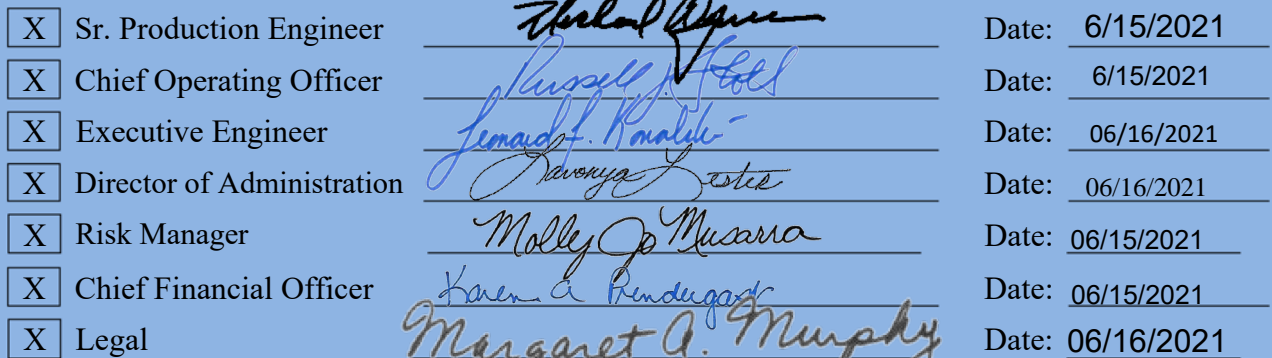 X Sr. Production Engineer Date: 6/15/2021
X Chief Operating Officer Russell J. Stoll Date: 6/15/2021
X Executive Engineer Leonard F. Kowalski Date: 06/16/2021
X Director of Administration Lavonya Lester Date: 06/16/2021
X Risk Manager Molly Jo Musarra Date: 06/15/2021
X Chief Financial Officer Karen A Prendergast Date: 06/15/2021
X Legal Margaret A. Murphy Date: 06/16/2021